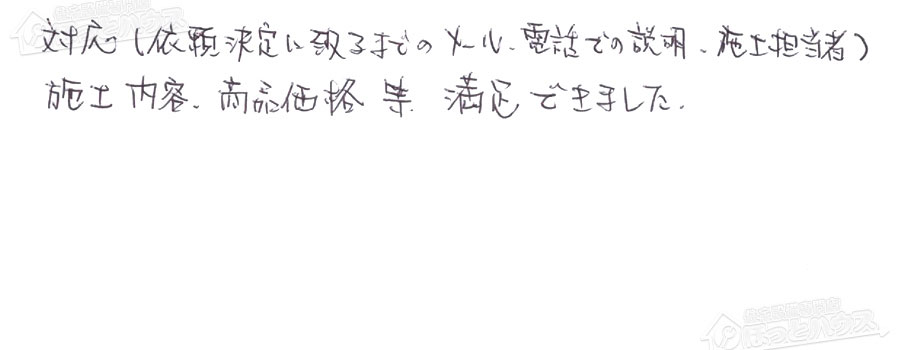 対応(依頼決定に致るまでのメール、電話での説明、施工担当者)
施工内容、商品価格等 満足できました。
住宅設備専門店
ほっとハウス